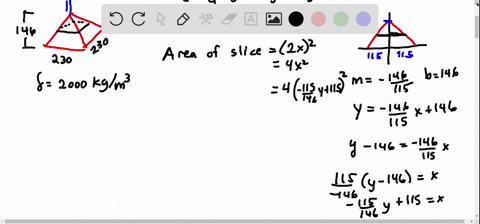 146
230
230
δ = 2000 kg/m³
Area of slice = (2x)²
= 4x²
= 4(-115/146 y + 115)²
115 115
m = -146/115 b = 146
y = -146/115 x + 146
y - 146 = -146/115 x
115/-146 (y - 146) = x
-115/146 y + 115 = x